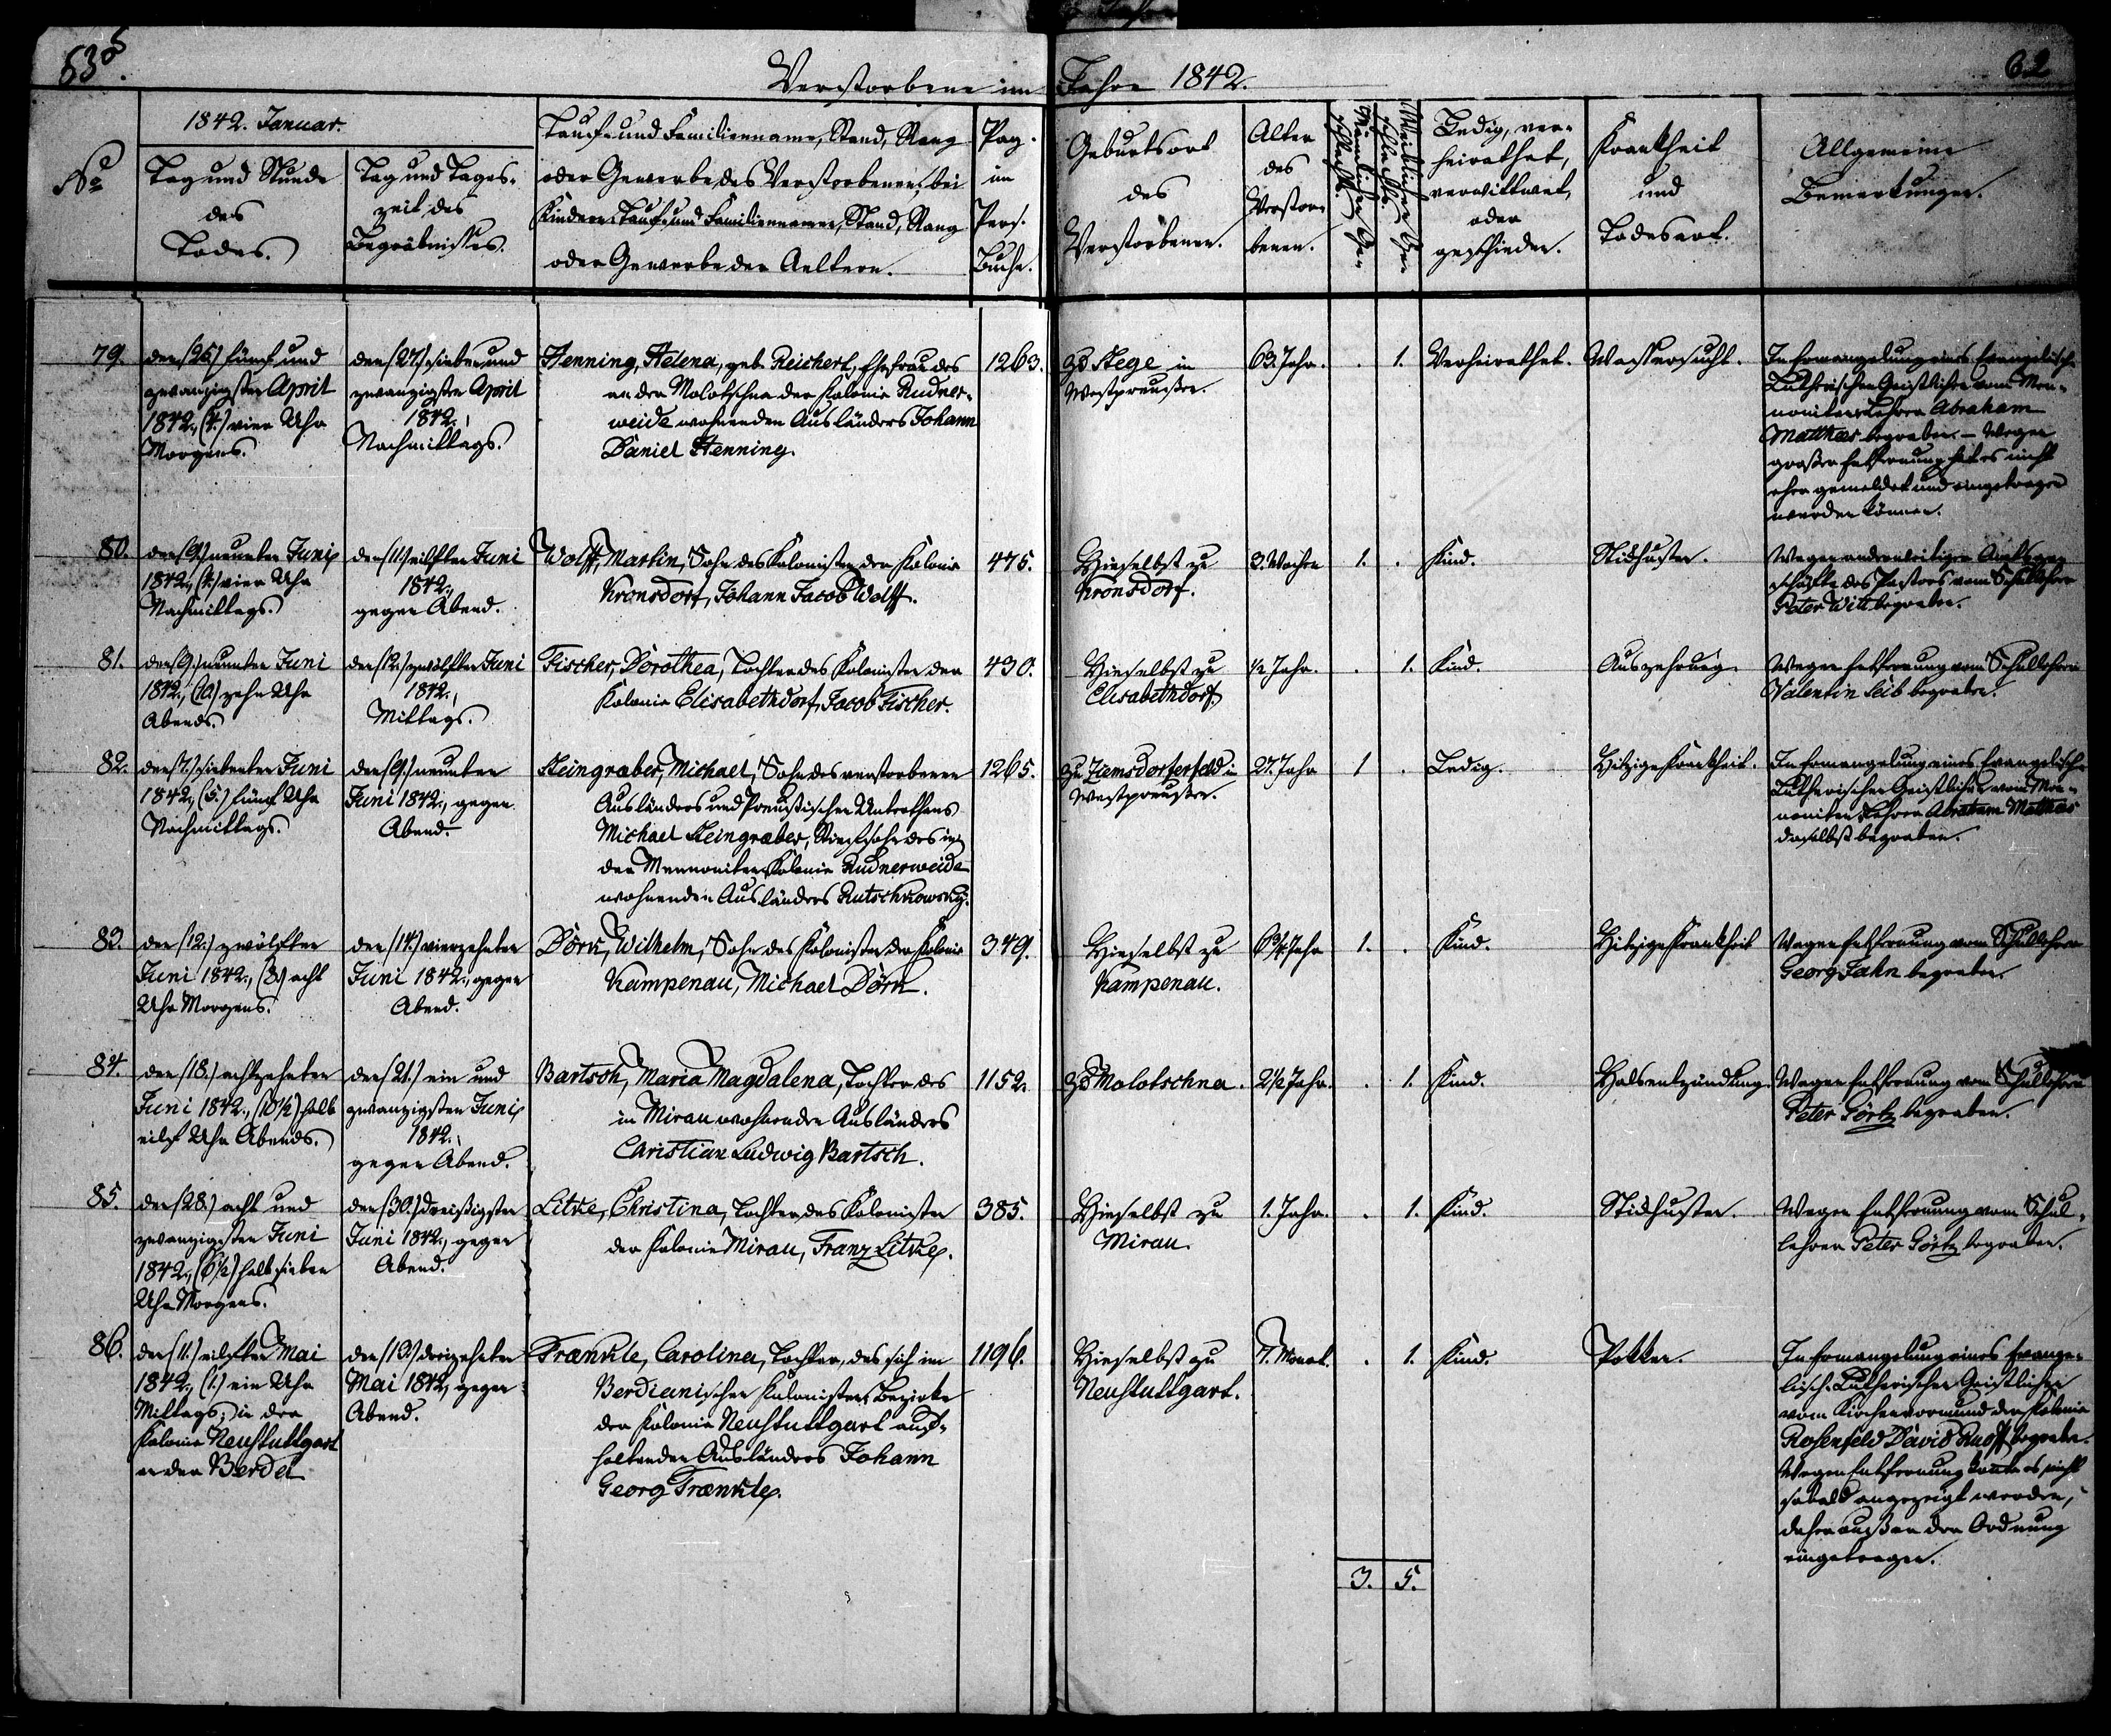 Verstorbene im Jahre 1842.
62
1842. Januar.
No
Tag und Stunde
des
Todes.
Tag und Tages-
zeit des
Begräbnisses.
Tauf- und Familienname, Stand, Rang
oder Gewerbe des Verstorbenen, bei
Kindern Tauf- und Familienname, Stand, Rang
oder Gewerbe der Aeltern.
Pag.
im
Pers.
Buche.
Geburtsort
des
Verstorbenen.
Alter
des
Verstor-
benen.
Männlichen Ge-
schlechts.
Weiblichen Ge-
schlechts.
Ledig, ver-
heirathet,
verwittwet,
oder
geschieden.
Krankheit
und
Todesart.
Allgemeine
Bemerkungen.
79.
den (25.) fünf und
zwanzigsten April
1842., (4.) vier Uhr
Morgens.
den (27.) sieben und
zwanzigsten April
1842.,
Nachmittags.
Henning, Helena, geb. Reichert, Ehefrau des
an der Molotschna der Kolonie Rudner-
weide wohnenden Ausländers Johann
Daniel Henning.
1263.
Zu Stege in
Westpreußen.
63. Jahr.
. 1.
Verheirathet.
Wassersucht.
In Ermangelung eines Evangelisch-
Lutherischen Geistlichen vom Men-
noniten Lehrer Abraham
Matthies begraben. – Wegen
großer Entfernung hat es nicht
eher gemeldet und eingetragen
werden können.
80.
den (9.) neunten Juni
1842., (4.) vier Uhr
Nachmittags.
den (11.) eilften Juni
1842.,
gegen Abend.
Wolff, Martin, Sohn des Kolonisten der Kolonie
Kronsdorf, Johann Jacob Wolff.
475.
Hieselbst zu
Kronsdorf.
3. Wochen
1. .
Kind.
Stickhusten.
Wegen anderweitiger Amtsge-
schäfte des Pastors vom Schullehrer
Peter Witt begraben.
81.
den (9.) neunten Juni
1842., (10.) zehn Uhr
Abends.
den (12.) zwölften Juni
1842.,
Mittags.
Fischer, Dorothea, Tochter des Kolonisten der
Kolonie Elisabethdorf, Jacob Fischer.
430.
Hieselbst zu
Elisabethdorf.
1/2 Jahr.
. 1.
Kind.
Auszehrung.
Wegen Entfernung vom Schullehrer
Valentin Leib begraben.
82.
den (7.) siebenten Juni
1842., (5.) fünf Uhr
Nachmittags.
den (9.) neunten
Juni 1842., gegen
Abend.
Steingraeber, Michael, Sohn des verstorbenen
Ausländers und Preußischen Unterthans
Michael Steingraeber, Stiefsohn des in
der Mennoniten Kolonie Rudnerweide
wohnenden Ausländers Rutschkowsky.
1265.
Westpreußen.
27. Jahr
1 .
Ledig.
Hitzige Krankheit.
In Ermangelung eines Evangelisch-
Lutherischen Geistlichen vom Men-
noniten Lehrer Abraham Matthies
daselbst begraben.
83.
den (12.) zwölften
Juni 1842., (8.) acht
Uhr Morgens.
den (14.) vierzehnten
Juni 1842., gegen
Abend.
Dörk, Wilhelm, Sohn des Kolonisten der Kolonie
Kampenau, Michael Dörk.
349.
Hieselbst zu
Kampenau.
6 3/4 Jahr
1. .
Kind.
Hitzige Krankheit
Wegen Entfernung vom Schullehrer
Georg Jahn begraben.
84.
den (18.) achtzehnten
Juni 1842., (10 1/2) halb
eilf Uhr Abends.
den (21.) ein und
zwanzigsten Juni
1842.,
gegen Abend.
Bartsch, Maria Magdalena, Tochter des
in Mirau wohnenden Ausländers
Christian Ludwig Bartsch.
1152.
Zu Molotschna.
2 1/2 Jahr.
. 1.
Kind.
Halsentzündung.
Wegen Entfernung vom Schullehrer
Peter Görtz begraben.
85.
den (28.) acht und
zwanzigsten Juni
1842., (6 1/2) halb sieben
Uhr Morgens.
den (30.) dreißigsten
Juni 1842., gegen
Abend.
Litke, Christina, Tochter des Kolonisten
der Kolonie Mirau, Franz Litke.
385.
Hieselbst zu
Mirau.
1. Jahr.
. 1.
Kind.
Stickhusten.
Wegen Entfernung vom Schul-
lehrer Peter Görtz begraben.
86.
den (11.) eilften Mai
1842., (1.) ein Uhr
Mittags; in der
Kolonie Neustuttgart
an der Berda
den (13.) dreizehnten
Mai 1842., gegen
Abend.
Frænkle, Carolina, Tochter des sich im
Berdianischen Kolonisten Bezirke
der Kolonie Neustuttgart auf-
haltenden Ausländers Johann
Georg Frænkle.
1196.
Hieselbst zu
Neustuttgart.
7. Monat.
. 1.
Kind.
Pokken.
In Ermangelung eines Evange-
lisch-Lutherischen Geistlichen
vom Kirchenvormund der Kolonie
Rosenfeld David Ruoff begraben.
Wegen Entfernung konnte es nicht
sobald angezeigt werden,
daher außer der Ordnung
eingetragen.
3. 5.